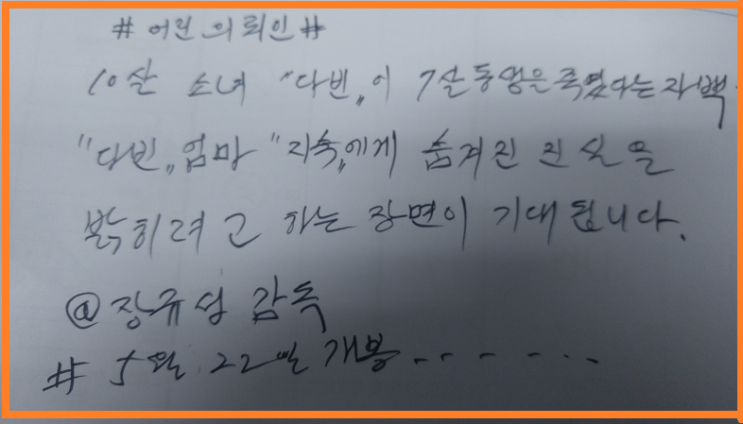 # 어린 의뢰인 #
10살 소녀 "다빈"이 7살 동생을 죽였다는 자백.
"다빈" 엄마 "지숙"에게 숨겨진 진실을
밝히려고 하는 장면이 기대됩니다.
@장규성 감독
# 5월 22일 개봉.......